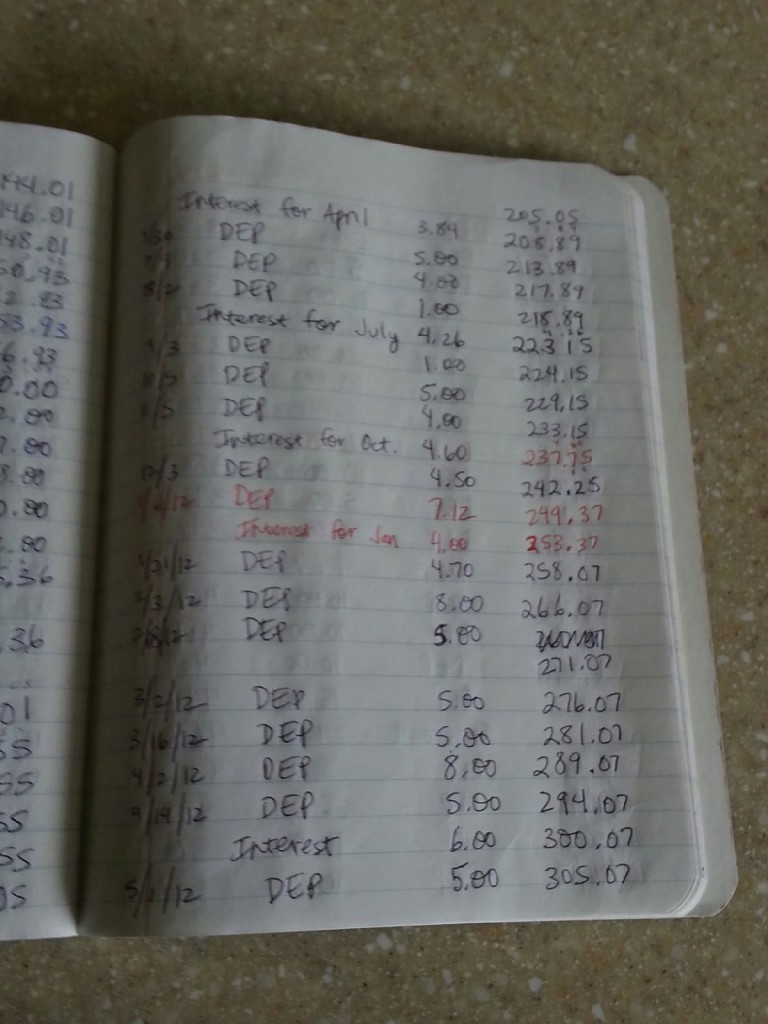 144.01
146.01
148.01
50.93
2.93
53.93
6.93
0.00
2.00
7.00
8.00
0.00
.00
5.36
.36
01
55
55
55
55
05
205.05
Interest for April 3.84 208.89
4/30 DEP 5.00 213.89
DEP 4.00 217.89
8/2 DEP 1.00 218.89
Interest for July 4.26 223.15
9/3 DEP 1.00 224.15
10/5 DEP 5.00 229.15
11/5 DEP 4.00 233.15
Interest for Oct. 4.60 237.75
12/3 DEP 4.50 242.25
DEP 7.12 249.37
Interest for Jan 4.00 253.37
1/21/12 DEP 4.70 258.07
2/3/12 DEP 8.00 266.07
2/18/12 DEP 5.00
271.07
3/2/12 DEP 5.00 276.07
3/16/12 DEP 5.00 281.07
4/2/12 DEP 8.00 289.07
4/14/12 DEP 5.00 294.07
Interest 6.00 300.07
5/1/12 DEP 5.00 305.07